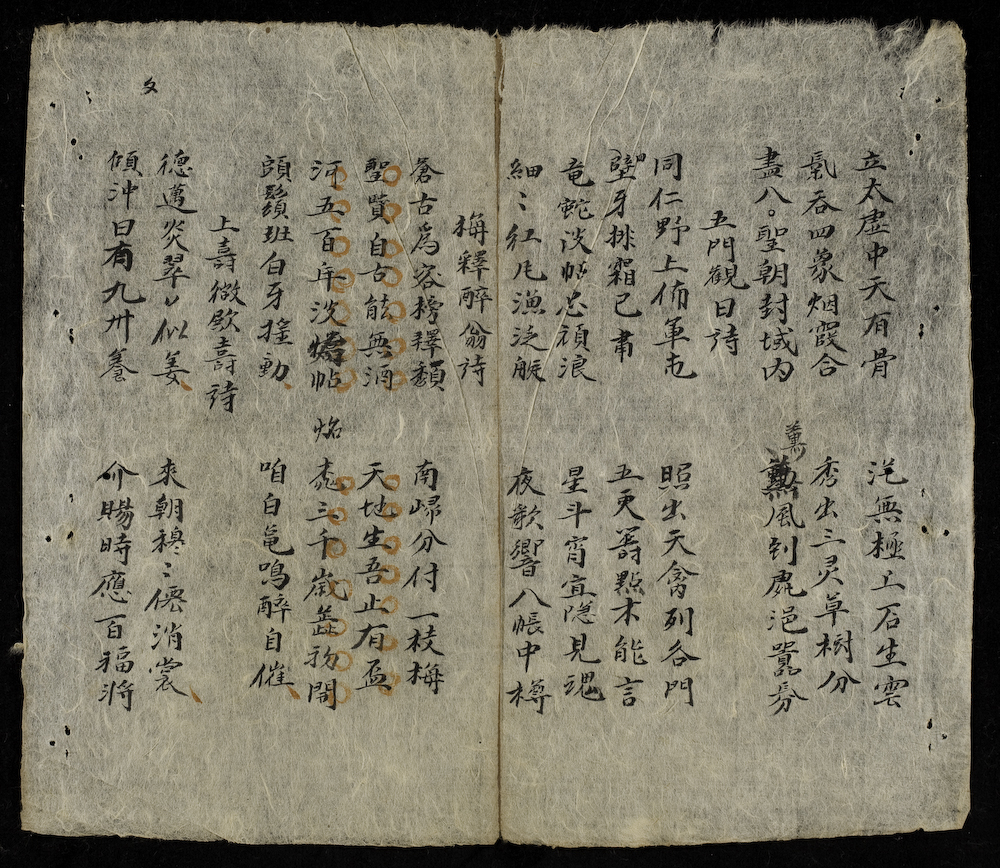 立太虛中天有骨 浞無極工石生雲
氣吞四象烟霞合 秀出三灵草樹分
盡八。聖朝封域内 薰風到鹿浥囂氛
五門觀日詩
同仁野上佈軍屯 照出天禽列各門
壁牙排霜已肅 五更籌點木能言
竜蛇淡帖忠禎浪 星斗宵宜隐見瑰
細〻紅凡漁泛艇 夜歌響八帳中樽
梅釋醉翁詩
蒼古為容榜釋顏 南歸分付一枝梅
聖賢自古能無酒 天地生吾止有盃
河五百年淡帖 桃三千歲蕋初開
頭鬚班白牙搖動 咱白黽鳴醉自催
上壽徵歐壽詩
德邁炎翠〻似姜 來朝穆〻僊消裳
傾沖日有九卅養 介賜時應百福將